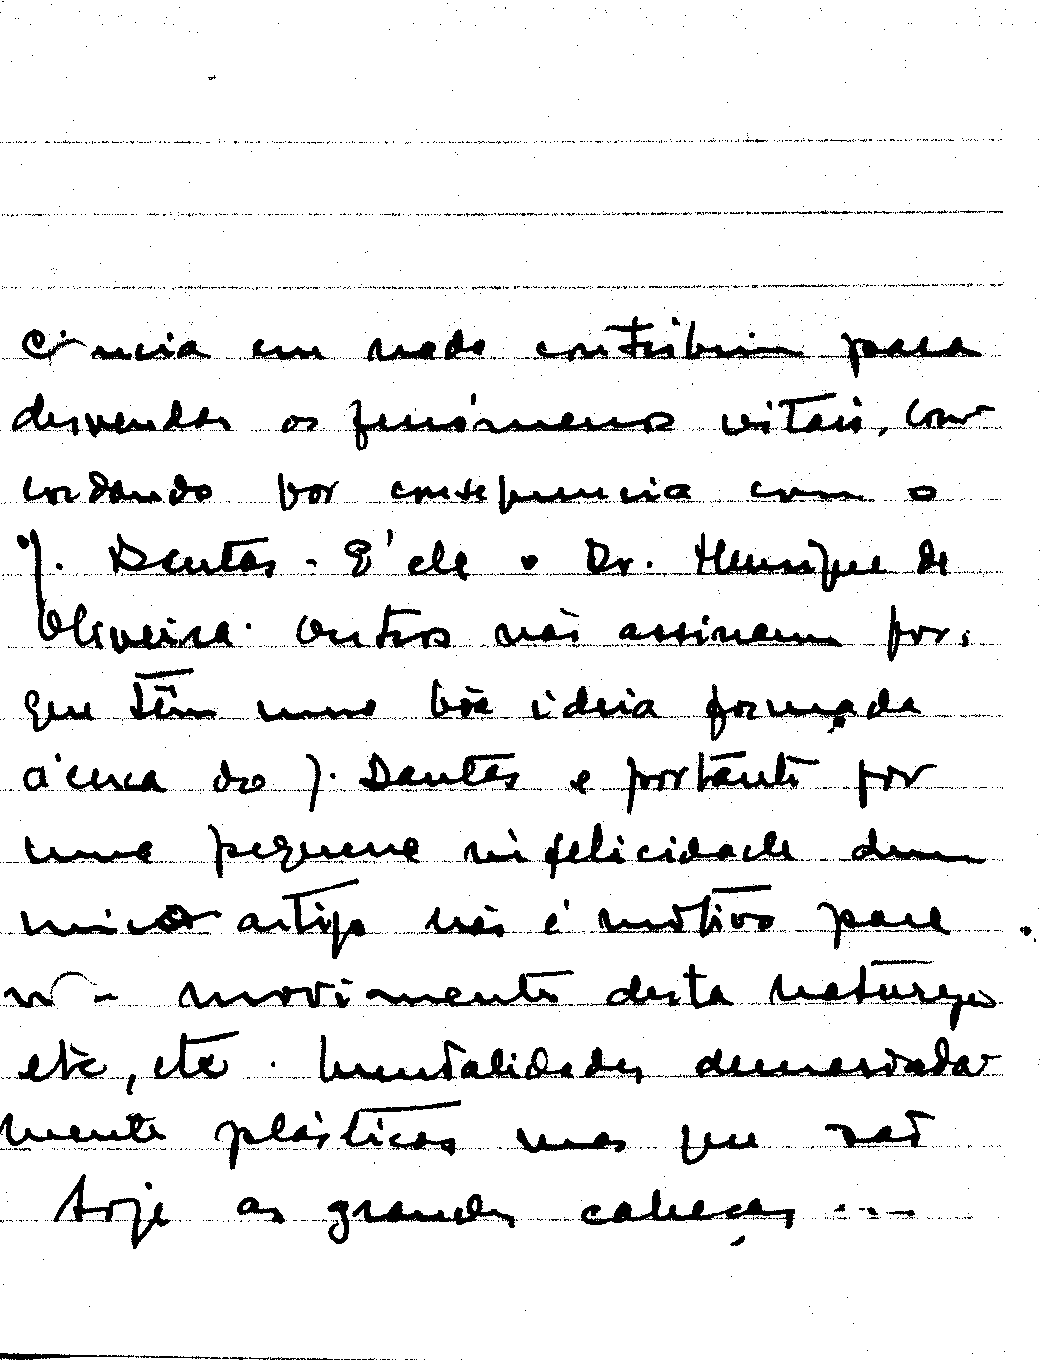 ciência em nada contribuiu para
desvendar os fenómenos vitais, con-
cordando por consequencia com o
J. Dantas. E' ele o Dr. Henrique de
Oliveira. Outros não assinam por-
que têm uma bôa ideia formada
ácerca do J. Dantas e portanto por
uma pequena infelicidade dum
único artigo não é motivo para
um movimento desta natureza
etc, etc. Mentalidades demasiada-
mente plásticas mas que são
hoje as grandes cabeças ...